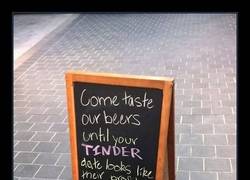 Come taste
our beers
until your
TINDER
date looks like
their